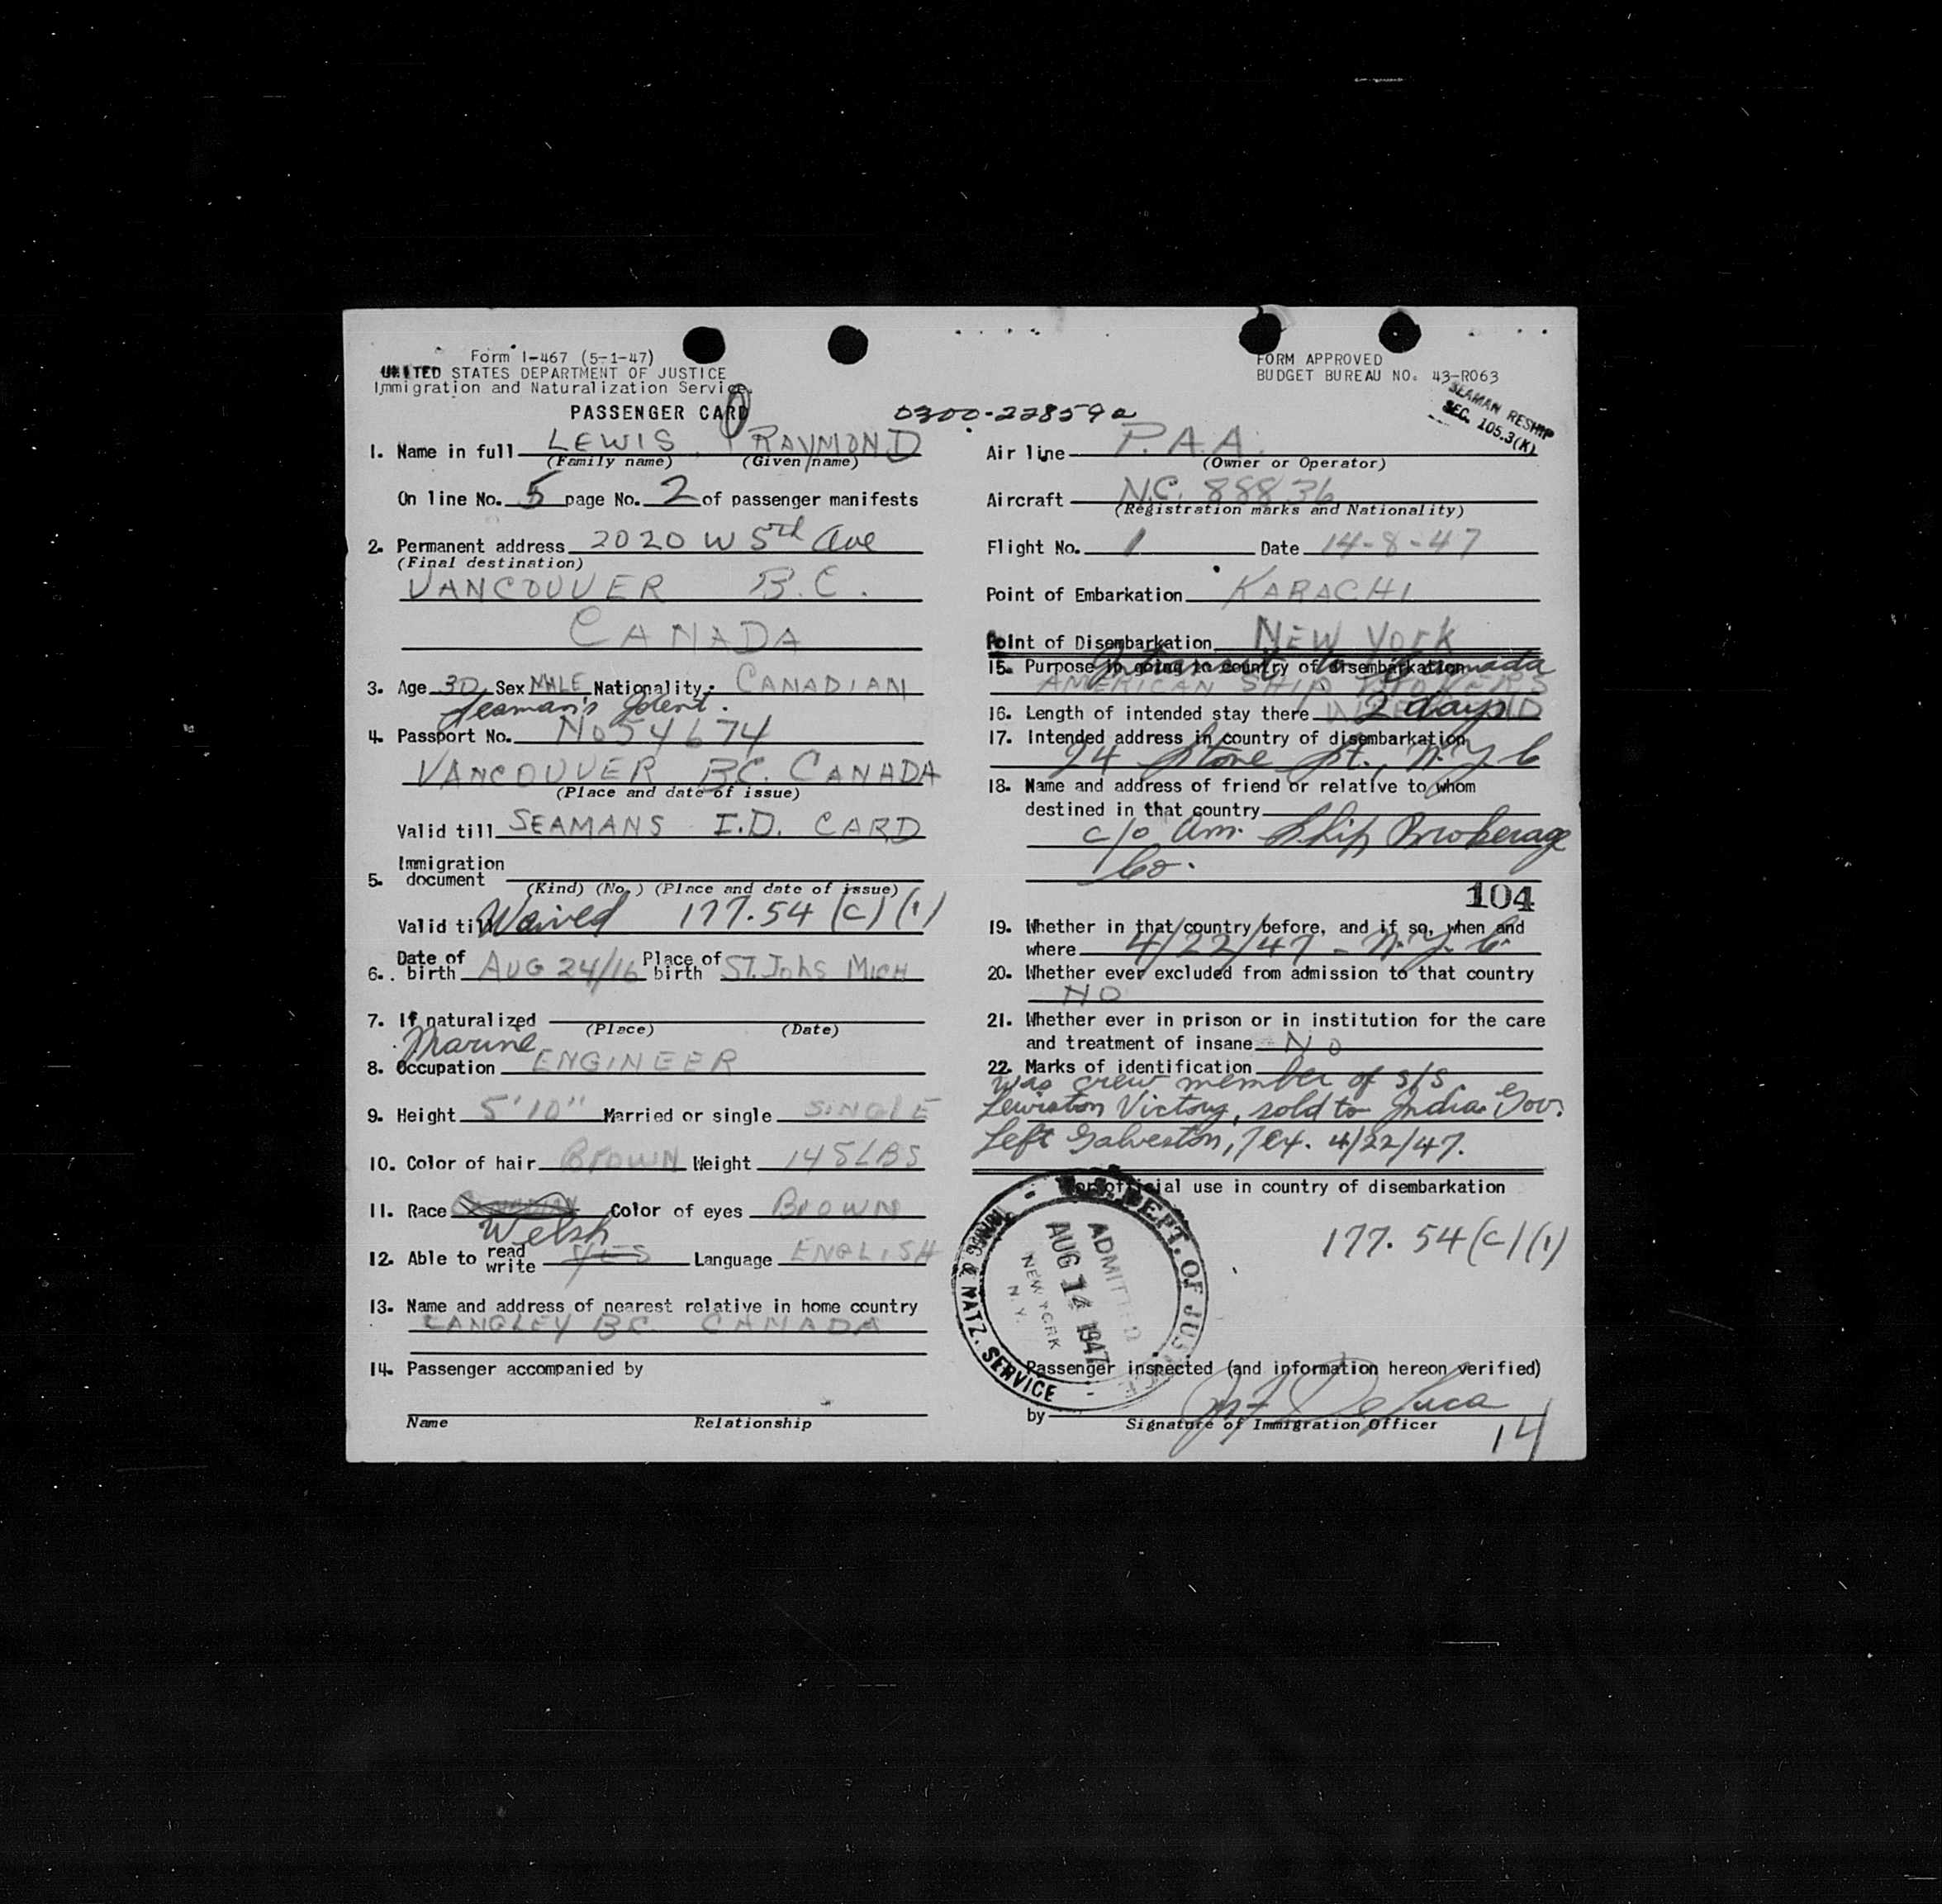 Form I-467 (5-1-47)
UNITED STATES DEPARTMENT OF JUSTICE
Immigration and Naturalization Service
PASSENGER CARD
0300-22859a
FORM APPROVED
BUDGET BUREAU NO. 43-R063
SEAMAN RESHIP
SEC. 105.3(K)
1. Name in full LEWIS, RAYMOND
(Family name) (Given name)
On line No. 5 page No. 2 of passenger manifests
2. Permanent address 2020 W 5th Ave
(Final destination)
VANCOUVER B.C.
CANADA
3. Age 30 Sex MALE Nationality CANADIAN
Seaman's Ident.
4. Passport No. No 54674
VANCOUVER BC. CANADA
(Place and date of issue)
Valid till SEAMANS I.D. CARD
5. Immigration document
(Kind) (No.) (Place and date of issue)
Valid till Waived 177.54 (c) (1)
6. Date of birth AUG 24/16 Place of birth ST. Johs MICH
7. If naturalized
(Place) (Date)
Marine
8. Occupation ENGINEER
9. Height 5'10" Married or single SINGLE
10. Color of hair BROWN Weight 145LBS
11. Race Color of eyes BROWN
Welsh
12. Able to read write YES Language ENGLISH
13. Name and address of nearest relative in home country
LANGLEY BC. CANADA
14. Passenger accompanied by
Name Relationship
Air line P.A.A.
(Owner or Operator)
Aircraft N.C. 88836
(Registration marks and Nationality)
Flight No. 1 Date 14-8-47
Point of Embarkation KARACHI
Point of Disembarkation NEW YORK
15. Purpose in going to country of disembarkation
In transit to Canada
AMERICAN SHIP
16. Length of intended stay there 2 days
17. Intended address in country of disembarkation
24 Stone St., N.Y.C
18. Name and address of friend or relative to whom
destined in that country
c/o Am. Ship Brokerage
Co.
104
19. Whether in that country before, and if so, when and
where 4/22/47 - N.Y.C.
20. Whether ever excluded from admission to that country
NO
21. Whether ever in prison or in institution for the care
and treatment of insane NO
22. Marks of identification
Was crew member of S/S
Lewiston Victory, sold to India Gov.
Left Galveston, Tex. 4/22/47.
For official use in country of disembarkation
177.54(c)(1)
U.S. DEPT. OF JUSTICE
IMMIG. & NATZ. SERVICE
ADMITTED
AUG 14 1947
NEW YORK
N.Y.
Passenger inspected (and information hereon verified)
by DeLuca
Signature of Immigration Officer
14